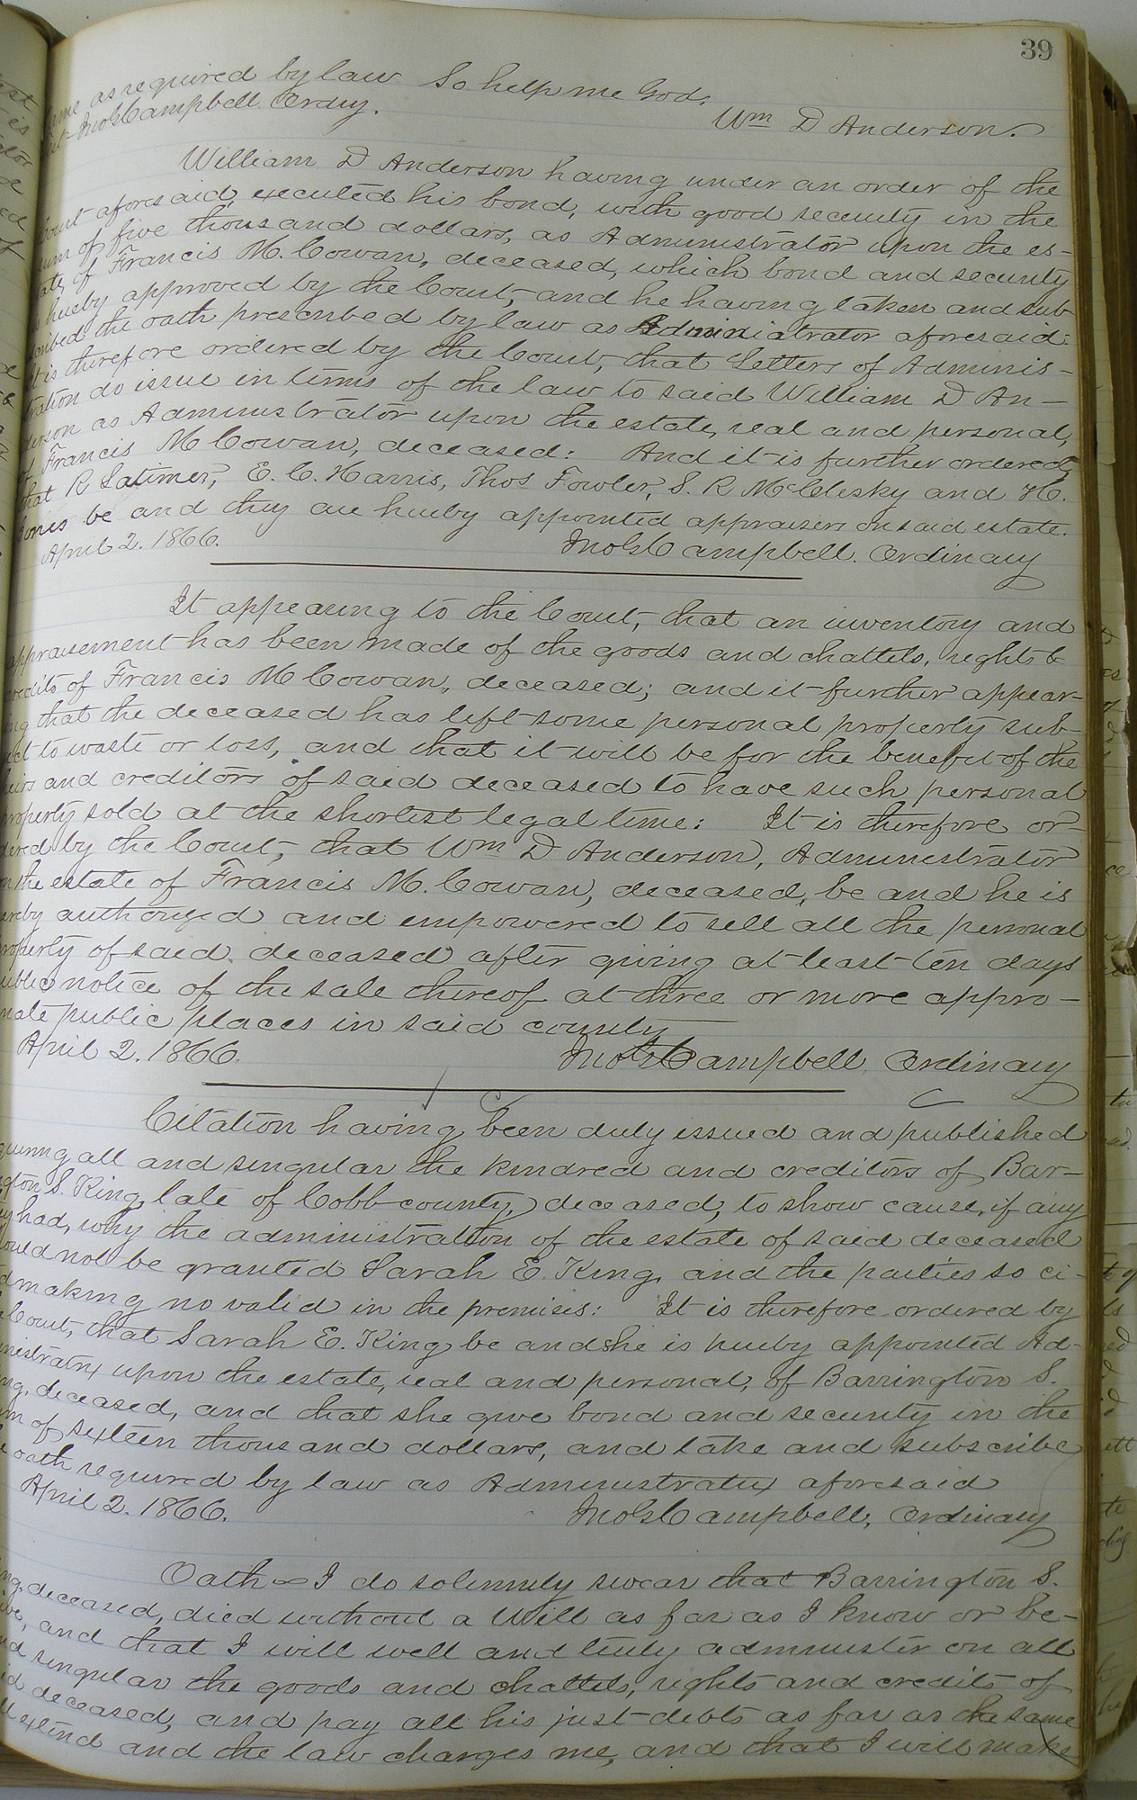 39
same as required by law So help me God.
Jno G Campbell Ordry. Wm D Anderson.
William D Anderson having under an order of the
Court aforesaid, executed his bond, with good security in the
sum of five thousand dollars, as Administrator upon the es-
tate of Francis M. Cowan, deceased, which bond and security
is hereby approved by the Court, and he having taken and sub-
scribed the oath prescribed by law as Administrator aforesaid:
It is therefore ordered by the Court, that Letters of Adminis-
tration do issue in terms of the law to said William D An-
derson as Administrator upon the estate, real and personal,
of Francis M Cowan, deceased: And it is further ordered,
that R Latimer, E. C. Harris, Thos Fowler, S. R McClesky and H.
Jones be and they are hereby appointed appraisers on said estate.
April 2. 1866. Jno G Campbell. Ordinary
It appearing to the Court, that an inventory and
appraisement has been made of the goods and chattels, rights &
credits of Francis M Cowan, deceased; and it further appear-
ing that the deceased has left some personal property sub-
ject to waste or loss, and that it will be for the benefit of the
heirs and creditors of said deceased to have such personal
property sold at the shortest legal time: It is therefore or-
dered by the Court, that Wm D Anderson, Administrator
on the estate of Francis M. Cowan, deceased, be and he is
hereby authorized and empowered to sell all the personal
property of said deceased after giving at least ten days
public notice of the sale thereof at three or more appro-
priate public places in said county
April 2. 1866. Jno G Campbell, Ordinary
Citation having been duly issued and published
requiring all and singular the kindred and creditors of Bar-
rington S. King, late of Cobb county, deceased, to show cause, if any
they had, why the administration of the estate of said deceased
should not be granted Sarah E. King, and the parties so ci-
ted making no valid in the premises: It is therefore ordered by
the Court, that Sarah E. King be and she is hereby appointed Ad-
ministratrix upon the estate, real and personal, of Barrington S.
King, deceased, and that she give bond and security in the
sum of sixteen thousand dollars, and take and subscribe
the oath required by law as Administratrix aforesaid
April 2. 1866. Jno G Campbell, Ordinary
Oath - I do solemnly swear that Barrington S.
King, deceased, died without a Will as far as I know or be-
lieve, and that I will well and truly administer on all
and singular the goods and chattels, rights and credits of
said deceased, and pay all his just debts as far as the same
will extend and the law charges me, and that I will make